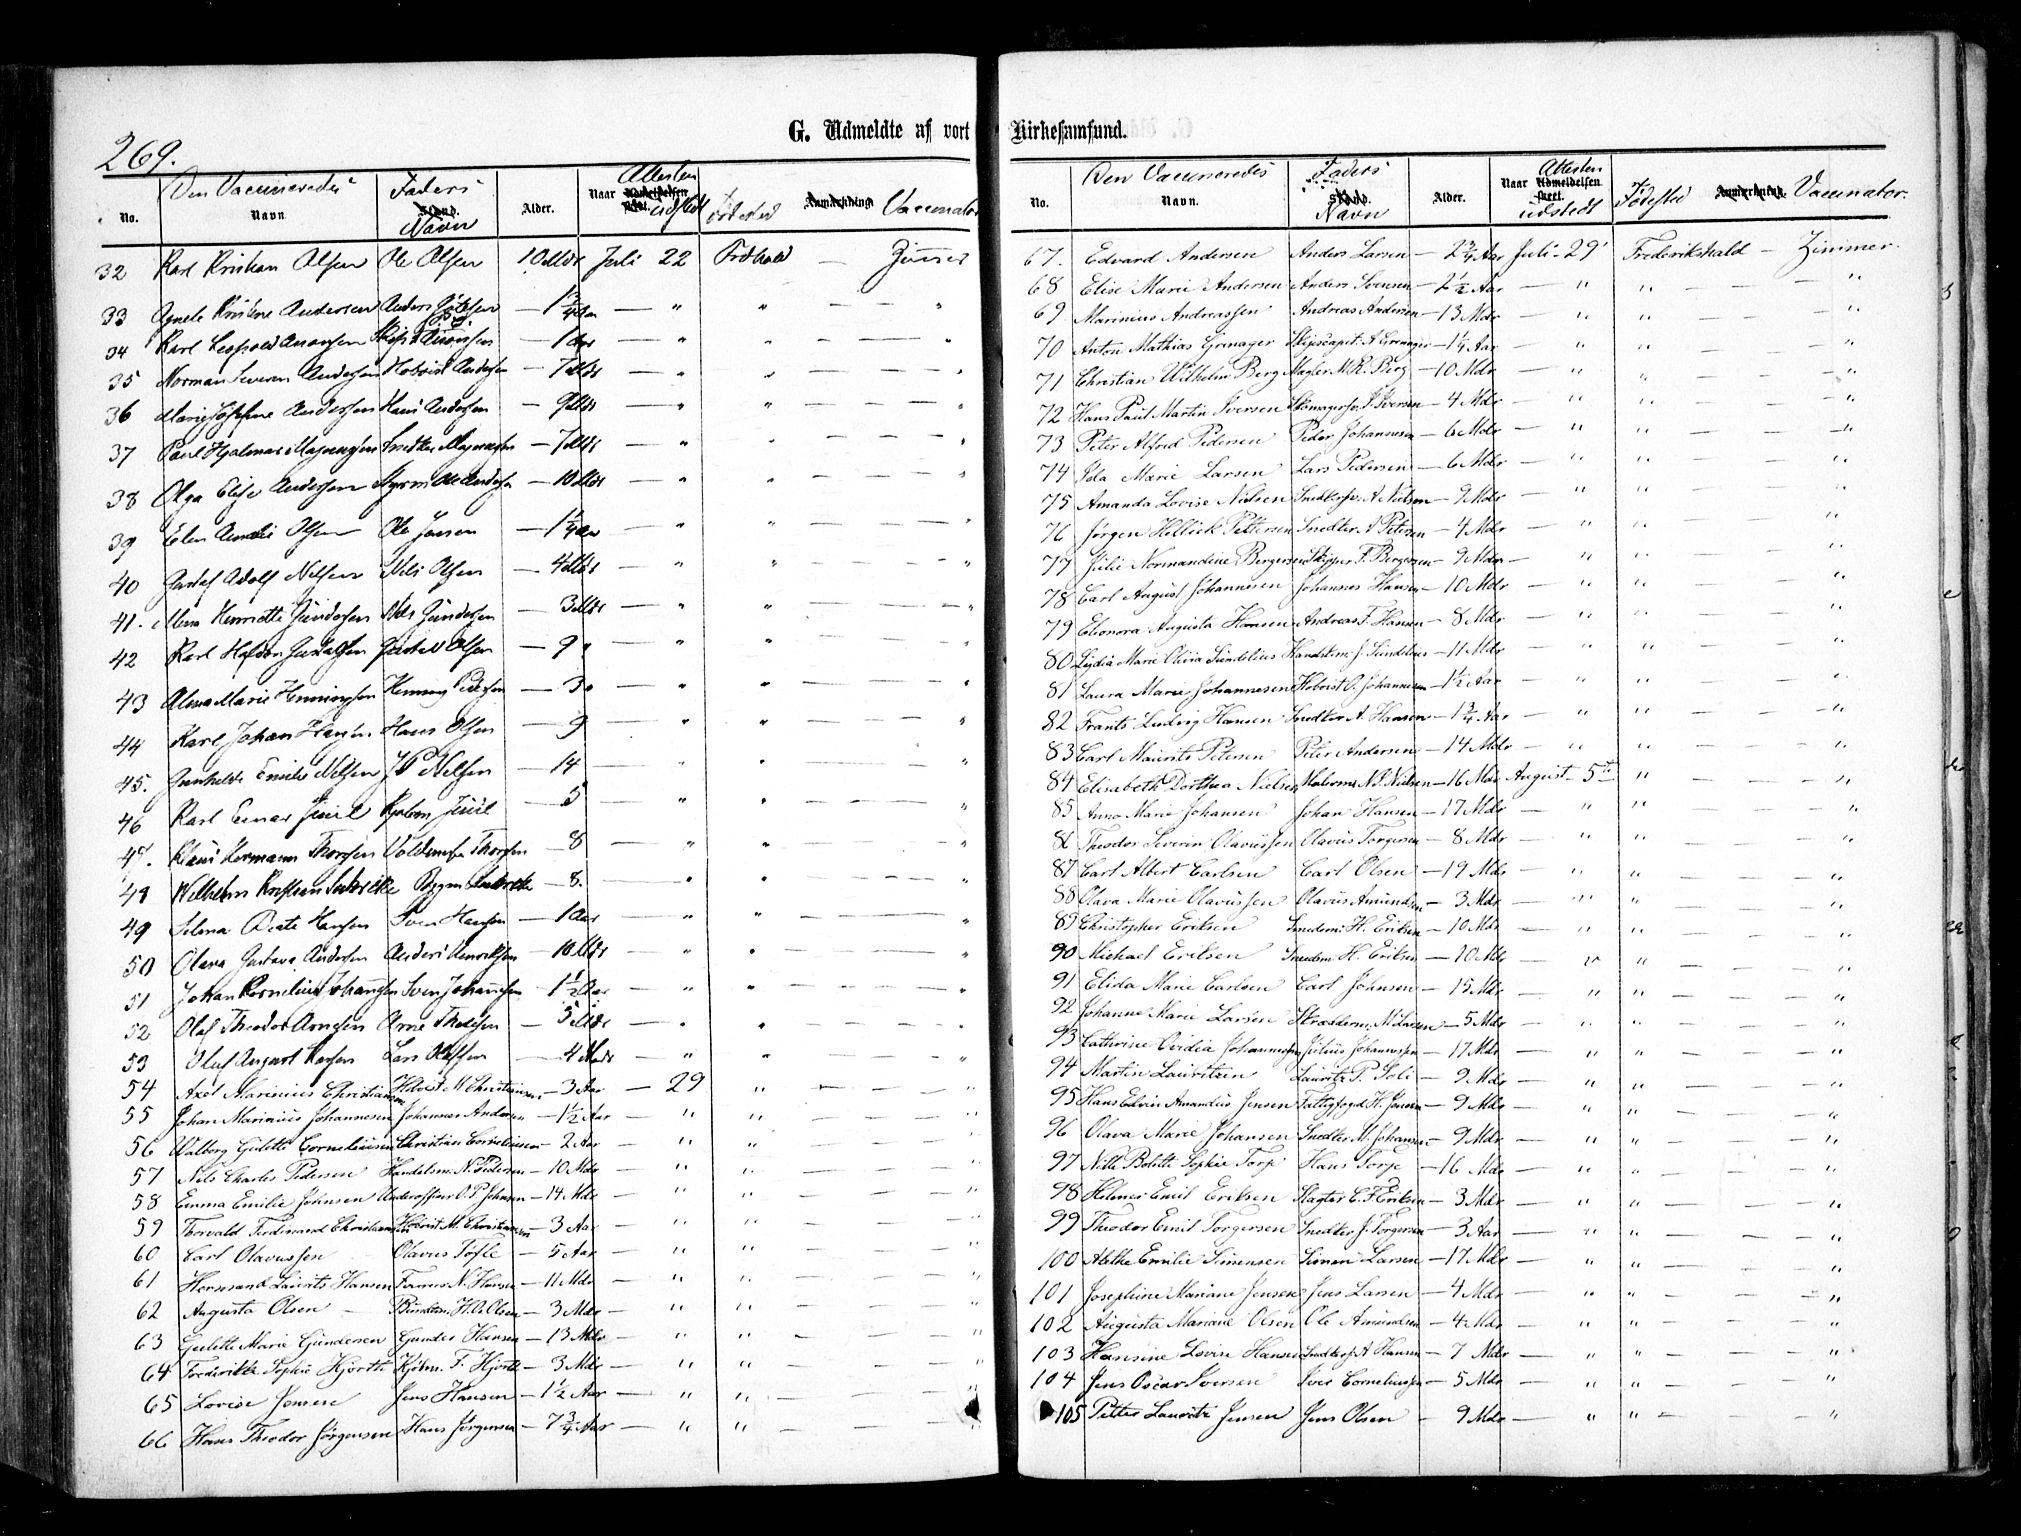 269.
G. Udmeldte af vort Kirkesamfund.
No. Den Vaccineredes Navn. Faders Stand. Navn Alder. Naar Udmeldelsen skeet. Attesten udstedt Fødested Anmerkning. Vaccinator
32 Karl Kristian Olsen Ole Olsen 10 Mdr Juli 22 Frdhald — Zimmer
33 Agnete Kristine Andersen Anders — 1 3/4 Aar — " " "
34 Karl Leopold — 1 Aar — " " "
35 Norman Severin Andersen Hoboist Andersen — 7 Mdr — " " "
36 Marie Josephine Andersen Hans Andersen — 9 Mdr — " " "
37 Paul Hjalmar Magnussen Snedker Magnussen — 7 Mdr — " " "
38 Olga Elise Andersen Styrm Andersen — 10 Mdr — " " "
39 Elen Olsen Ole Jensen — 1 1/4 Aar — " " "
40 Gustaf Adolf Nilsen Nils Olsen — 4 Mdr — " " "
41. Mina Henriette Gundersen Nils Gundersen — 3 Mdr — " " "
42 Karl Gustavsen Gustav Olsen — 9 " — " " "
43 Marie Henningsen Henning Pedersen — 3 " — " " "
44 Karl Johan Hansen Hans Olsen — 9 — " " "
45. Gunhilde Emilie Nilsen J P Nilsen — 14 — " " "
46 Karl Einar Juul Juul — 5 — " " "
47. Klaus Hermann Thorsen Thorsen — 8 — " " "
48 Wilhelm Kristian — 8. — " " "
49 Selma Beate Hansen Sven Hansen — 1 Aar — " " "
50 Olava Gustava Andersen Anders Henriksen — 10 Mdr — " " "
51 Johan Kornelius Johansen Sven Johansen — 1 1/2 Aar — " " "
52 Olaf Theodor Arnesen Arne — 5 Mdr — " " "
53 Oluf August Larsen Lars — 4 Mdr — " " "
54 Axel Marinius Christiansen Hoboist M Christiansen — 3 Aar — 29 " "
55 Johan Marinius Johannesen Johannes Andersen — 1 1/2 Aar — " " "
56 Walborg Gulette Corneliussen Christian Corneliussen — 2 Aar — " " "
57 Nils Charles Pedersen Handelsm. N. Pedersen — 10 Mdr — " " "
58 Emma Emilie Johnsen Underofficer O. P. Johnsen — 14 Mdr — " " "
59 Torvald Ferdinand Christiansen Hoboist M. Christiansen — 3 Aar — " " "
60 Carl Olavussen Olavus Tofle — 5 Aar — " " "
61 Hermand Laurits Hansen N. Hansen — 11 Mdr — " " "
62 Augusta Olsen — H. O. Olsen — 3 Mdr — " " "
63 Gulette Marie Gundersen Gunder Hansen — 13 Mdr — " " "
64 Frederikke Sophie Hjorth Kjøbm. F. Hjorth — 3 Mdr — " " "
65 Lovise Jensen Jens Hansen — 1 1/2 Aar — " " "
66 Hans Theodor Jørgensen Hans Jørgensen — 7 3/4 Aar — " " "
No. Den Vaccineredes Navn. Faders Stand. Navn Alder. Naar Udmeldelsen skeet. Attesten udstedt Fødested Anmerkning. Vaccinator.
67. Edvard Andersen Anders Larsen — 2 3/4 Aar Juli - 29 Frederikshald — Zimmer.
68 Elise Marie Andersen Anders Svensen — 2 1/2 Aar — " " "
69 Marinius Andreassen Andreas Andersen — 13 Mdr — " " "
70 Anton Mathias Grenager Skipscapit. A Grenager — 1 1/4 Aar — " " "
71 Christian Wilhelm Berg Mægler M. R. Berg — 10 Mdr — " " "
72 Hans Paul Martin Iversen Skomagersv. I. Iversen — 4 Mdr — " " "
73 Peter Alfred Pedersen Peder Johannesen — 6 Mdr — " " "
74 Ida Marie Larsen Lars Pedersen — 6 Mdr — " " "
75 Amanda Lovise Nielsen Snedkersv. A. Nielsen — 9 Mdr — " " "
76 Jørgen Pettersen Snedker. A Petersen — 4 Mdr — " " "
77 Julie Normandine Bergersen Skipper F. Bergersen — 9 Mdr — " " "
78 Carl August Johannesen Johannes Hansen — 10 Mdr — " " "
79 Eleonora Augusta Hansen Andreas F. Hansen — 8 Mdr — " " "
80 Lydia Marie Olivia Sundelius Handelsm. J. Sundelius — 11 Mdr — " " "
81 Laura Marie Johannesen Hoboist O. Johannesen — 1 1/2 Aar — " " "
82 Frants Ludvig Hansen Snedker A. Hansen — 1 3/4 Aar — " " "
83 Carl Maurits Petersen Peter Andersen — 14 Mdr — " " "
84 Elisabeth Dorthea Nielsen N. P. Nielsen — 16 Mdr August - 5te " "
85 Anna Marie Johansen Johan Hansen — 17 Mdr — " " "
86 Theodor Severin Olavussen Olavus Torgersen — 8 Mdr — " " "
87 Carl Albert Carlsen Carl Olsen — 19 Mdr — " " "
88 Olava Marie Olavussen Olavus Amundsen — 3 Mdr — " " "
89 Christopher Eriksen Smedem. H. Eriksen — 10 Mdr — " " "
90 Michael Eriksen Smedem. H. Eriksen — 10 Mdr — " " "
91 Elida Marie Carlsen Carl Johnsen — 15 Mdr — " " "
92 Johanne Marie Larsen Skrædderm. M Larsen — 5 Mdr — " " "
93 Cathrine Ovidia Johannessen Julius Johannessen — 17 Mdr — " " "
94 Martin Lauritzen Lauritz P. Soli — 9 Mdr — " " "
95 Hans Edvin Amandius Jensen Fattigfogd H. Jensen — 9 Mdr — " " "
96 Olava Marie Johansen Snedker M. Johansen — 9 Mdr — " " "
97 Nille Bolette Sophie Torp Hans Torp — 16 Mdr — " " "
98 Helmer Emil Eriksen Slagter C. F. Eriksen — 3 Mdr — " " "
99 Theodor Emil Torgersen Snedker J. Torgersen — 3 Aar — " " "
100 Emilie Simensen Simen Larsen — 17 Mdr — " " "
101 Josephine Mariane Jensen Jens Larsen — 4 Mdr — " " "
102 Augusta Mariane Olsen Ole Amundsen — 4 Mdr — " " "
103 Hansine Lovise Hansen Snedkers. A Hansen — 7 Mdr — " " "
104 Jens Oscar Iversen Iver Corneliussen — 5 Mdr — " " "
105 Petter Lauritz Jensen Jens Olsen — 9 Mdr — " " "